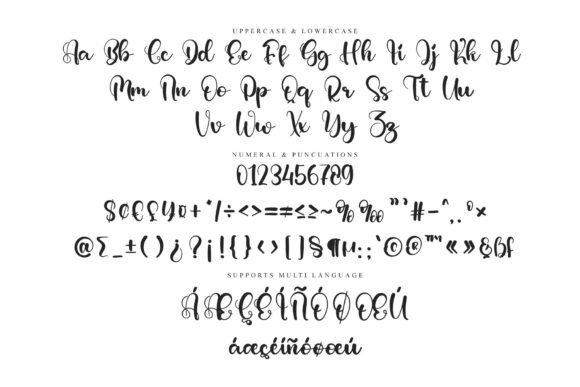 UPPERCASE & LOWERCASE
Aa Bb Cc Dd Ee Ff Gg Hh Ii Jj Kk Ll
Mm Nn Oo Pp Qq Rr Ss Tt Uu
Vv Ww Xx Yy Zz
NUMERAL & PUNCUATIONS
0123456789
$¢€£¥¤+*/÷<>=≠≤≥~%‰"'#-^,.°×
@Σ_±()¿?¡!{}‹›[]§¶µ:;`©®™«»&
SUPPORTS MULTI LANGUAGE
ÁÆÇÉÍÑÓØŒÚ
áæçéíñóøœú